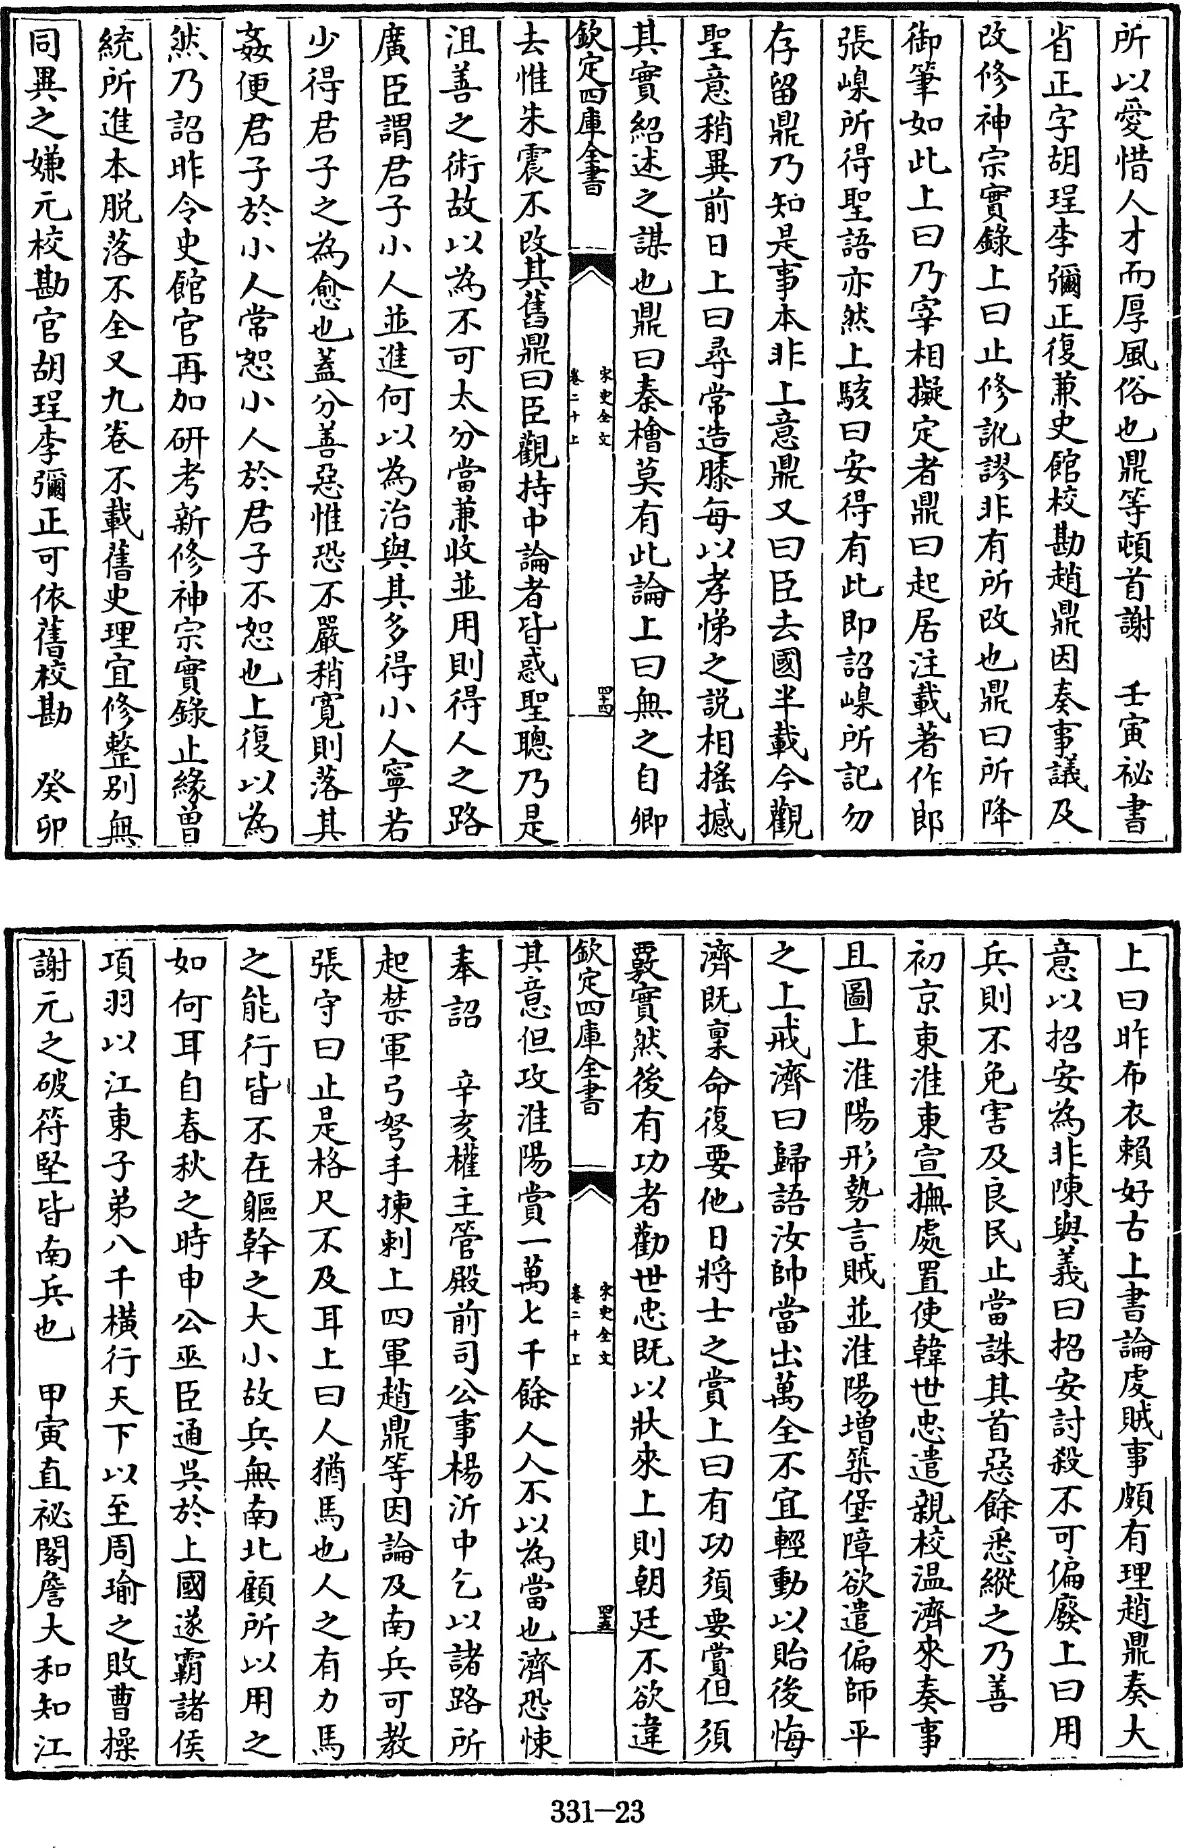 所以愛惜人才而厚風俗也鼎等頓首謝　壬寅祕書
省正字胡珵李彌正復兼史館校勘趙鼎因奏事議及
改修神宗實錄上曰止修訛謬非有所改也鼎曰所降
御筆如此上曰乃宰相擬定者鼎曰起居注載著作郎
張嵲所得聖語亦然上駭曰安得有此即詔嵲所記勿
存留鼎乃知是事本非上意鼎又曰臣去國半載今觀
聖意稍異前日上曰尋常造膝每以孝悌之説相搖撼
其實紹述之謀也鼎曰秦檜莫有此論上曰無之自卿
欽定四庫全書
宋史全文
卷二十上
四十四
去惟朱震不改其舊鼎曰臣觀持中論者皆惑聖聰乃是
沮善之術故以為不可太分當兼收並用則得人之路
廣臣謂君子小人並進何以為治與其多得小人寧若
少得君子之為愈也蓋分善惡惟恐不嚴稍寛則落其
姦便君子於小人常恕小人於君子不恕也上復以為
然乃詔昨令史館官再加研考新修神宗實錄止緣曾
統所進本脱落不全又九卷不載舊史理宜修整别無
同異之嫌元校勘官胡珵李彌正可依舊校勘　癸卯
上曰昨布衣賴好古上書論虔賊事頗有理趙鼎奏大
意以招安為非陳與義曰招安討殺不可偏廢上曰用
兵則不免害及良民止當誅其首惡餘悉縱之乃善
初京東淮東宣撫處置使韓世忠遣親校温濟來奏事
且圖上淮陽形勢言賊並淮陽增築堡障欲遣偏師平
之上戒濟曰歸語汝帥當出萬全不宜輕動以貽後悔
濟既稟命復要他日將士之賞上曰有功須要賞但須
覈實然後有功者勸世忠既以狀來上則朝廷不欲違
欽定四庫全書
宋史全文
卷二十上
四十五
其意但攻淮陽賞一萬七千餘人人不以為當也濟恐悚
奉詔　辛亥權主管殿前司公事楊沂中乞以諸路所
起禁軍弓弩手揀刺上四軍趙鼎等因論及南兵可教
張守曰止是格尺不及耳上曰人猶馬也人之有力馬
之能行皆不在軀幹之大小故兵無南北顧所以用之
如何耳自春秋之時申公巫臣通吳於上國遂霸諸侯
項羽以江東子弟八千横行天下以至周瑜之敗曹操
謝元之破苻堅皆南兵也　甲寅直祕閣詹大和知江
331-23